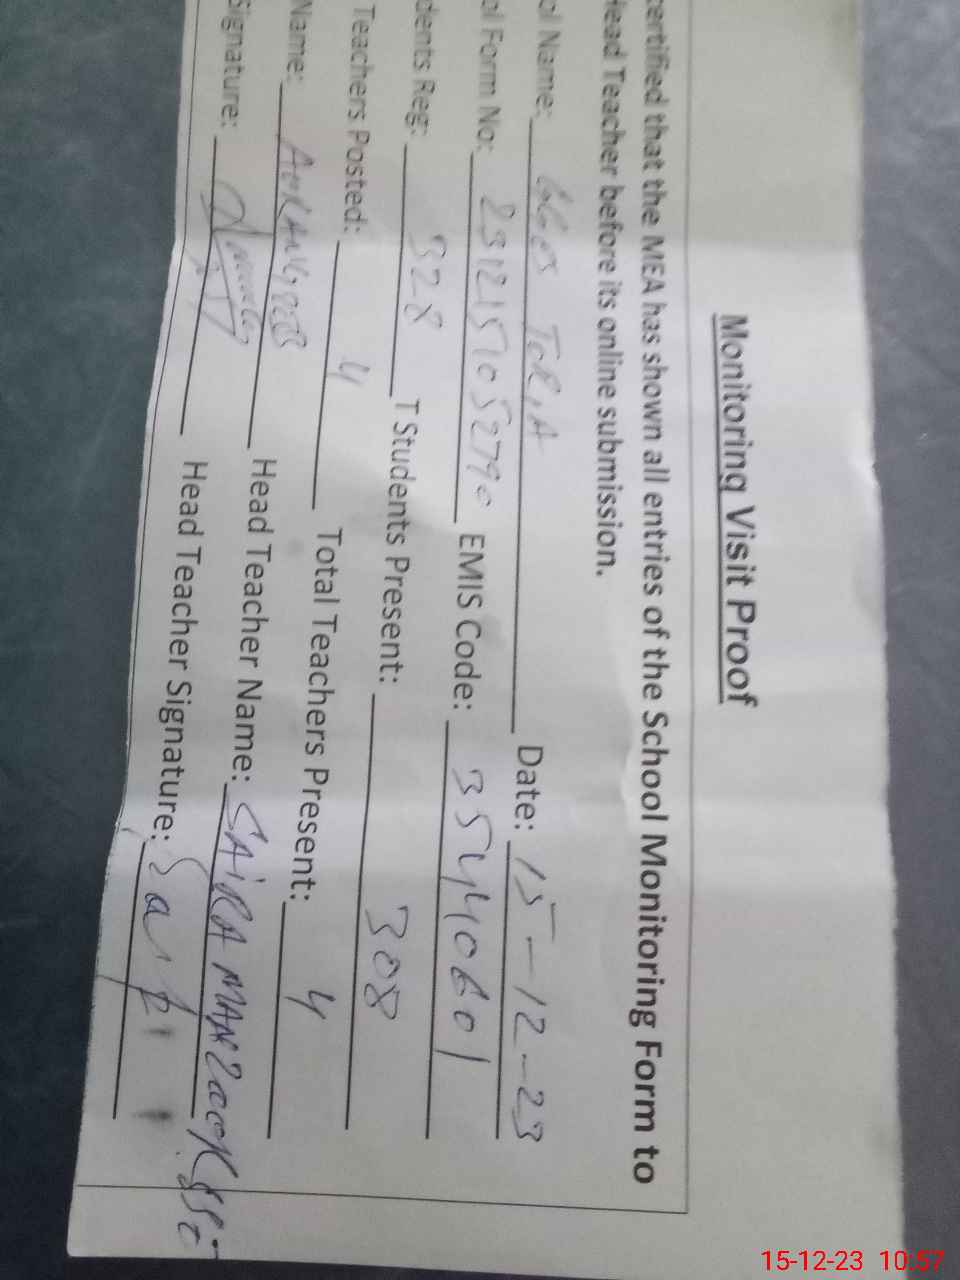 Monitoring Visit Proof
certified that the MEA has shown all entries of the School Monitoring Form to
Head Teacher before its online submission.
ol Name: GGES TORIA Date: 15-12-23
ol Form No: EMIS Code: 35440601
dents Reg: 328 T Students Present: 308
Teachers Posted: 4 Total Teachers Present: 4
Name: AURANGZEB Head Teacher Name: SAIRA MANZOOR SSE
Signature: Head Teacher Signature:
15-12-23 10:57